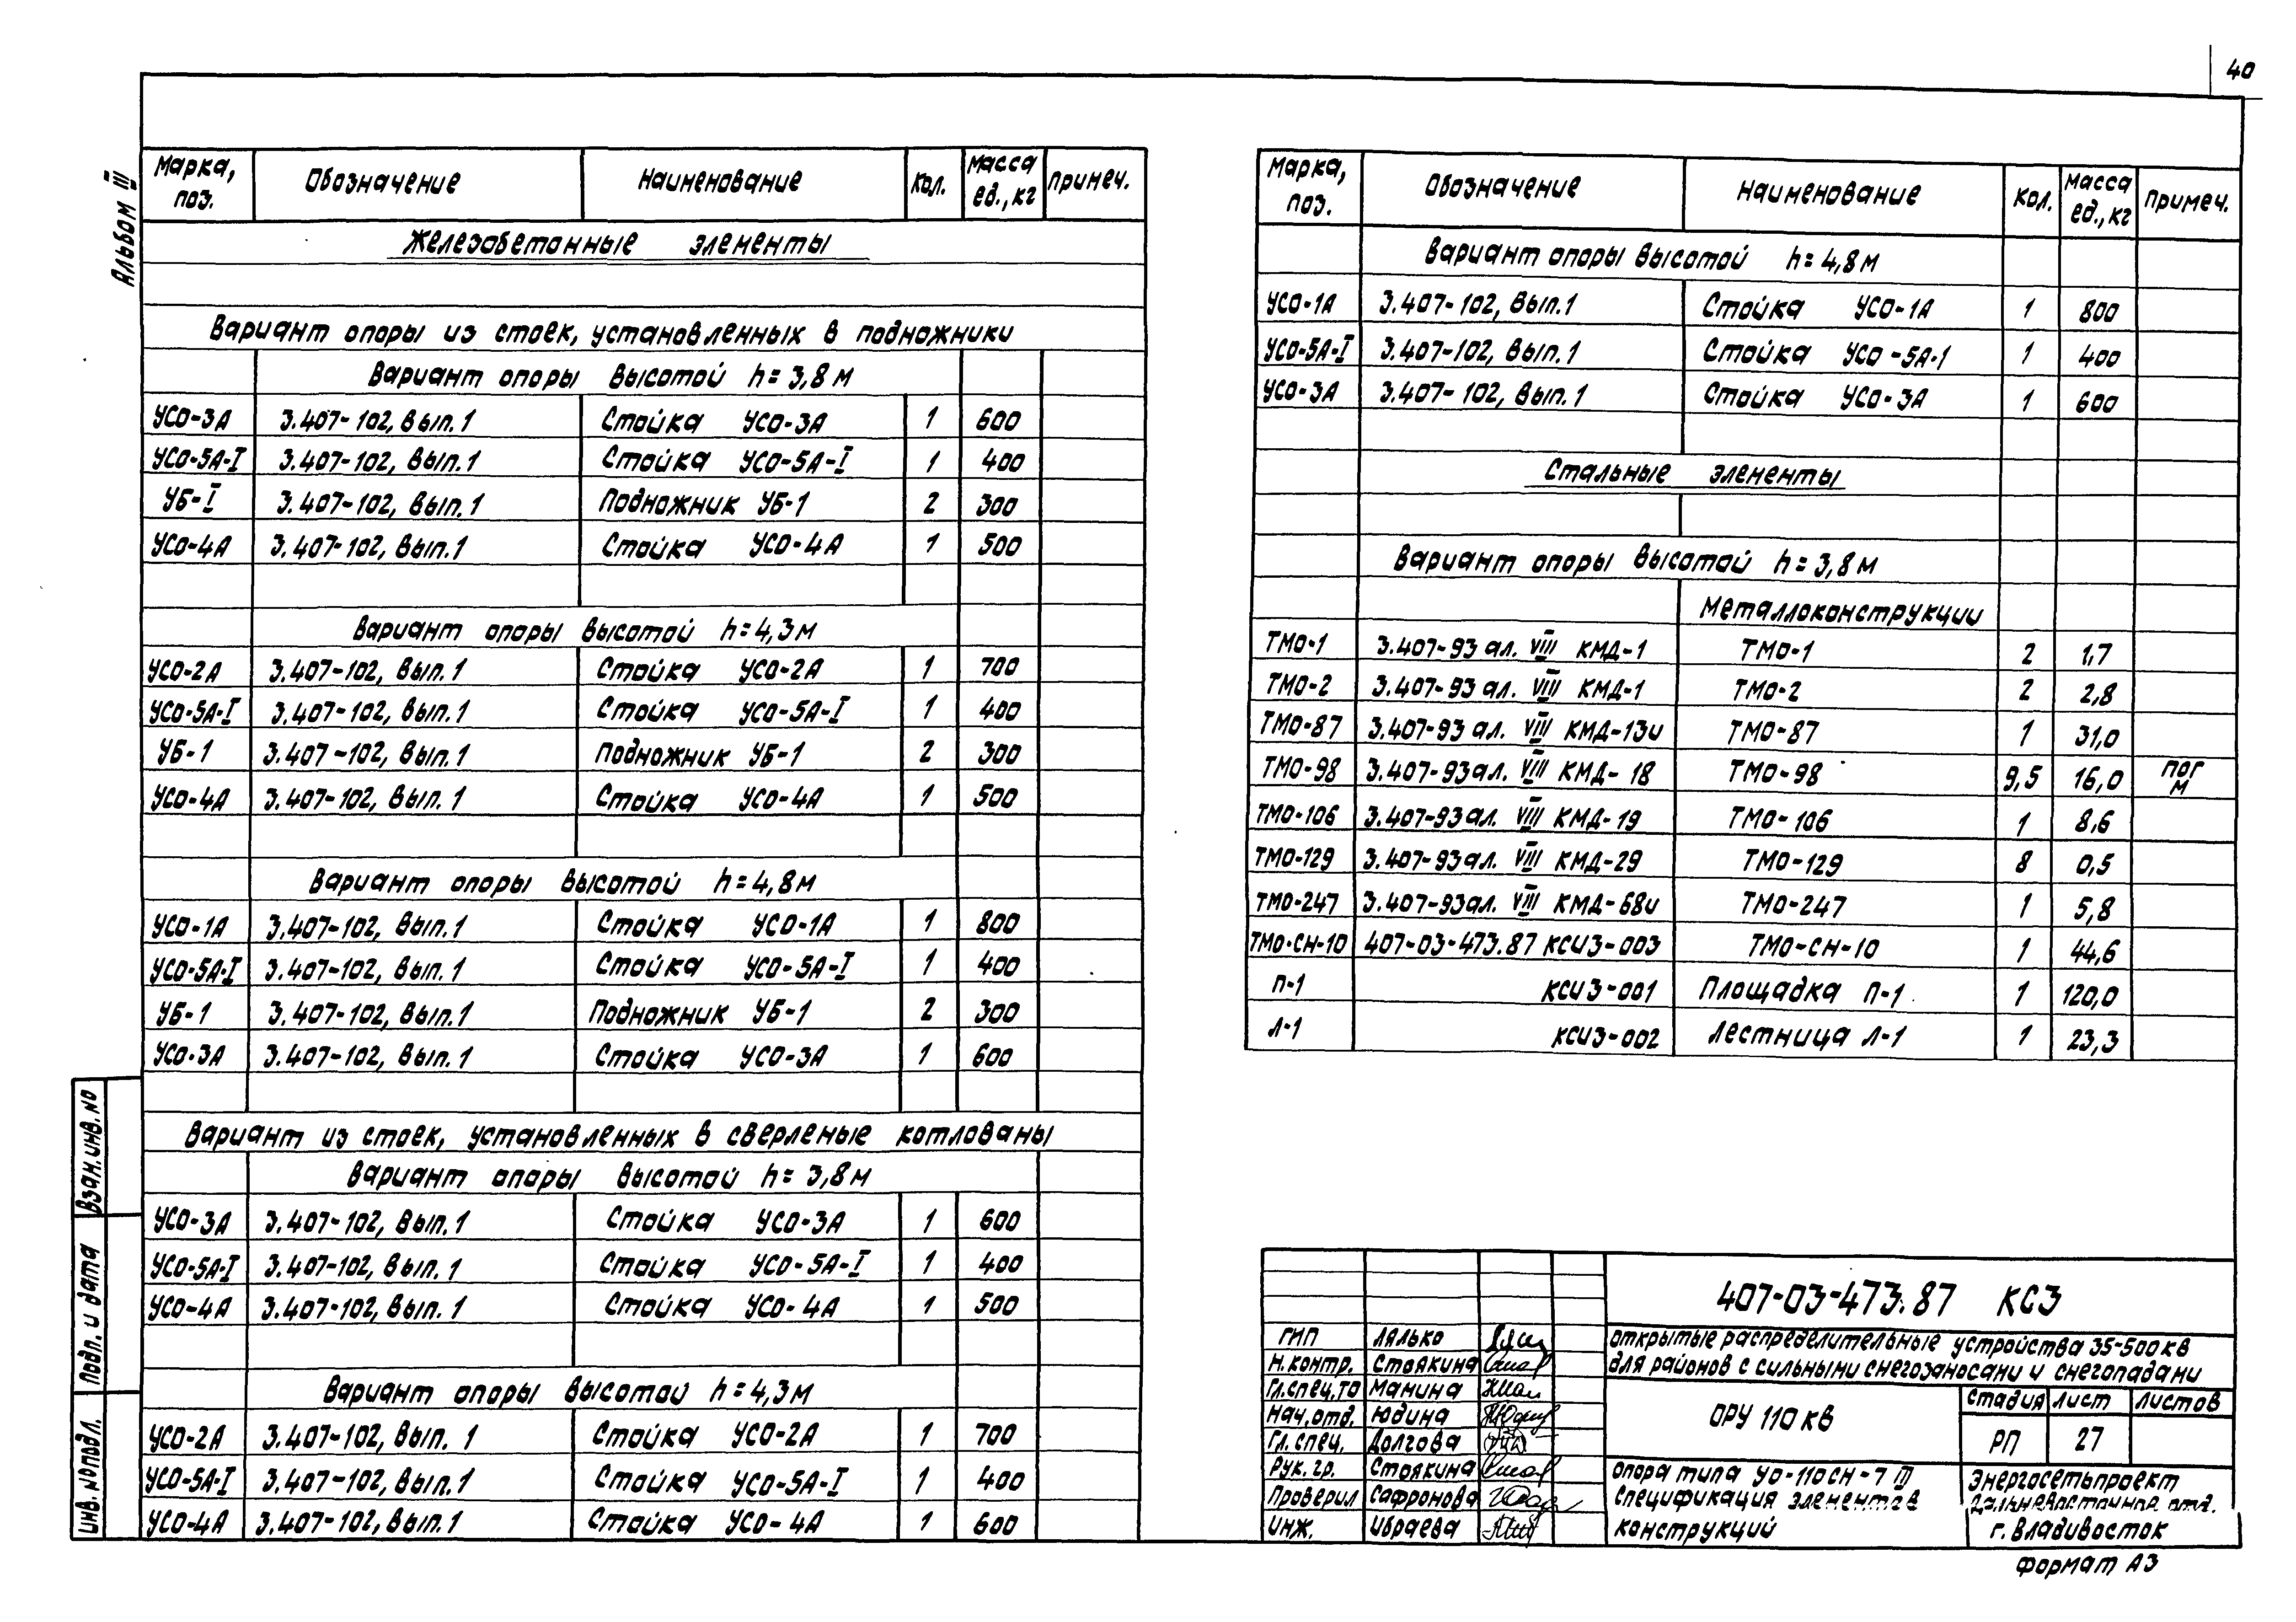 40
Альбом III
Марка, поз. Обозначение Наименование Кол. Масса ед., кг Примеч.
Железобетонные элементы
Вариант опоры из стоек, установленных в подножники
Вариант опоры высотой h=3,8м
УСО-3А 3.407-102, вып.1 Стойка УСО-3А 1 600
УСО-5А-I 3.407-102, вып.1 Стойка УСО-5А-I 1 400
УБ-I 3.407-102, вып.1 Подножник УБ-1 2 300
УСО-4А 3.407-102, вып.1 Стойка УСО-4А 1 500
Вариант опоры высотой h=4,3м
УСО-2А 3.407-102, вып.1 Стойка УСО-2А 1 700
УСО-5А-I 3.407-102, вып.1 Стойка УСО-5А-I 1 400
УБ-1 3.407-102, вып.1 Подножник УБ-1 2 300
УСО-4А 3.407-102, вып.1 Стойка УСО-4А 1 500
Вариант опоры высотой h=4,8м
УСО-1А 3.407-102, вып.1 Стойка УСО-1А 1 800
УСО-5А-I 3.407-102, вып.1 Стойка УСО-5А-I 1 400
УБ-1 3.407-102, вып.1 Подножник УБ-1 2 300
УСО-3А 3.407-102, вып.1 Стойка УСО-3А 1 600
Вариант из стоек, установленных в сверленые котлованы
Вариант опоры высотой h=3,8м
УСО-3А 3.407-102, вып.1 Стойка УСО-3А 1 600
УСО-5А-I 3.407-102, вып.1 Стойка УСО-5А-I 1 400
УСО-4А 3.407-102, вып.1 Стойка УСО-4А 1 500
Вариант опоры высотой h=4,3м
УСО-2А 3.407-102, вып. 1 Стойка УСО-2А 1 700
УСО-5А-I 3.407-102, вып.1 Стойка УСО-5А-I 1 400
УСО-4А 3.407-102, вып.1 Стойка УСО-4А 1 600
Взам. инв. No
Подп. и дата
Инв. No подл.
Марка, поз. Обозначение Наименование Кол. Масса ед., кг Примеч.
Вариант опоры высотой h=4,8м
УСО-1А 3.407-102, вып.1 Стойка УСО-1А 1 800
УСО-5А-I 3.407-102, вып.1 Стойка УСО-5А-1 1 400
УСО-3А 3.407-102, вып.1 Стойка УСО-3А 1 600
Стальные элементы
Вариант опоры высотой h=3,8м
Металлоконструкции
ТМО-1 3.407-93 ал. VIII КМД-1 ТМО-1 2 1,7
ТМО-2 3.407-93 ал. VIII КМД-1 ТМО-2 2 2,8
ТМО-87 3.407-93 ал. VIII КМД-13и ТМО-87 1 31,0
ТМО-98 3.407-93 ал. VIII КМД-18 ТМО-98 9,5 16,0 пог м
ТМО-106 3.407-93 ал. VIII КМД-19 ТМО-106 1 8,6
ТМО-129 3.407-93 ал. VIII КМД-29 ТМО-129 8 0,5
ТМО-247 3.407-93 ал. VIII КМД-68и ТМО-247 1 5,8
ТМО-СН-10 407-03-473.87 КСИ3-003 ТМО-СН-10 1 44,6
П-1 КСИ3-001 Площадка П-1 1 120,0
Л-1 КСИ3-002 Лестница Л-1 1 23,3
407-03-473.87 КС3
Открытые распределительные устройства 35-500кВ
для районов с сильными снегозаносами и снегопадами
ГИП Лялько
Н.контр. Стоякина
Гл.спец.ТО Манина
Нач.отд. Юдина
Гл. спец. Долгова
Рук. гр. Стоякина
Проверил Сафронова
Инж. Ибраева
ОРУ 110кВ
Стадия Лист Листов
РП 27
Опора типа УО-110СН-7 III
Спецификация элементов
конструкций
Энергосетьпроект
Дальневосточное отд.
г. Владивосток
Формат А3